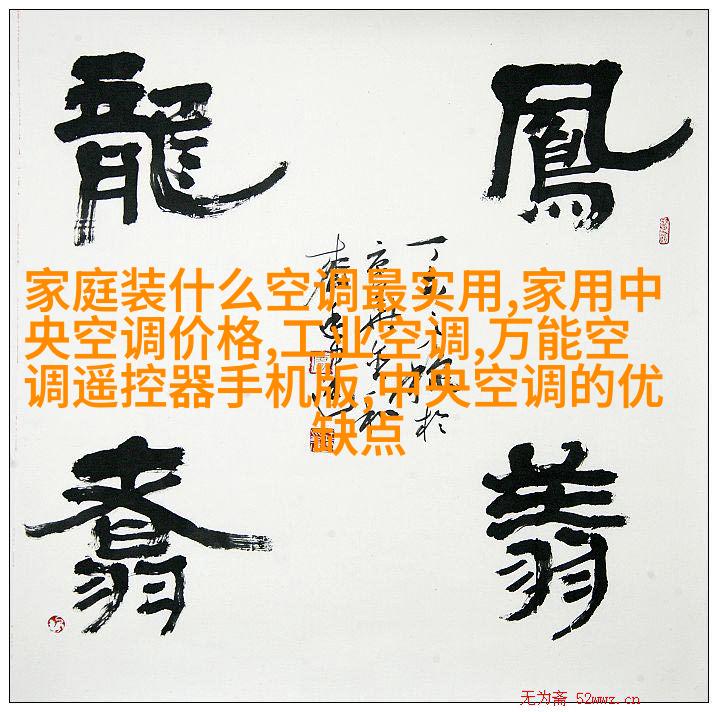 鳳翔
龍翥
家庭装什么空调最实用,家用中
央空调价格,工业空调,万能空
调遥控器手机版,中央空调的优
缺点
无为斋 52wwz.cn